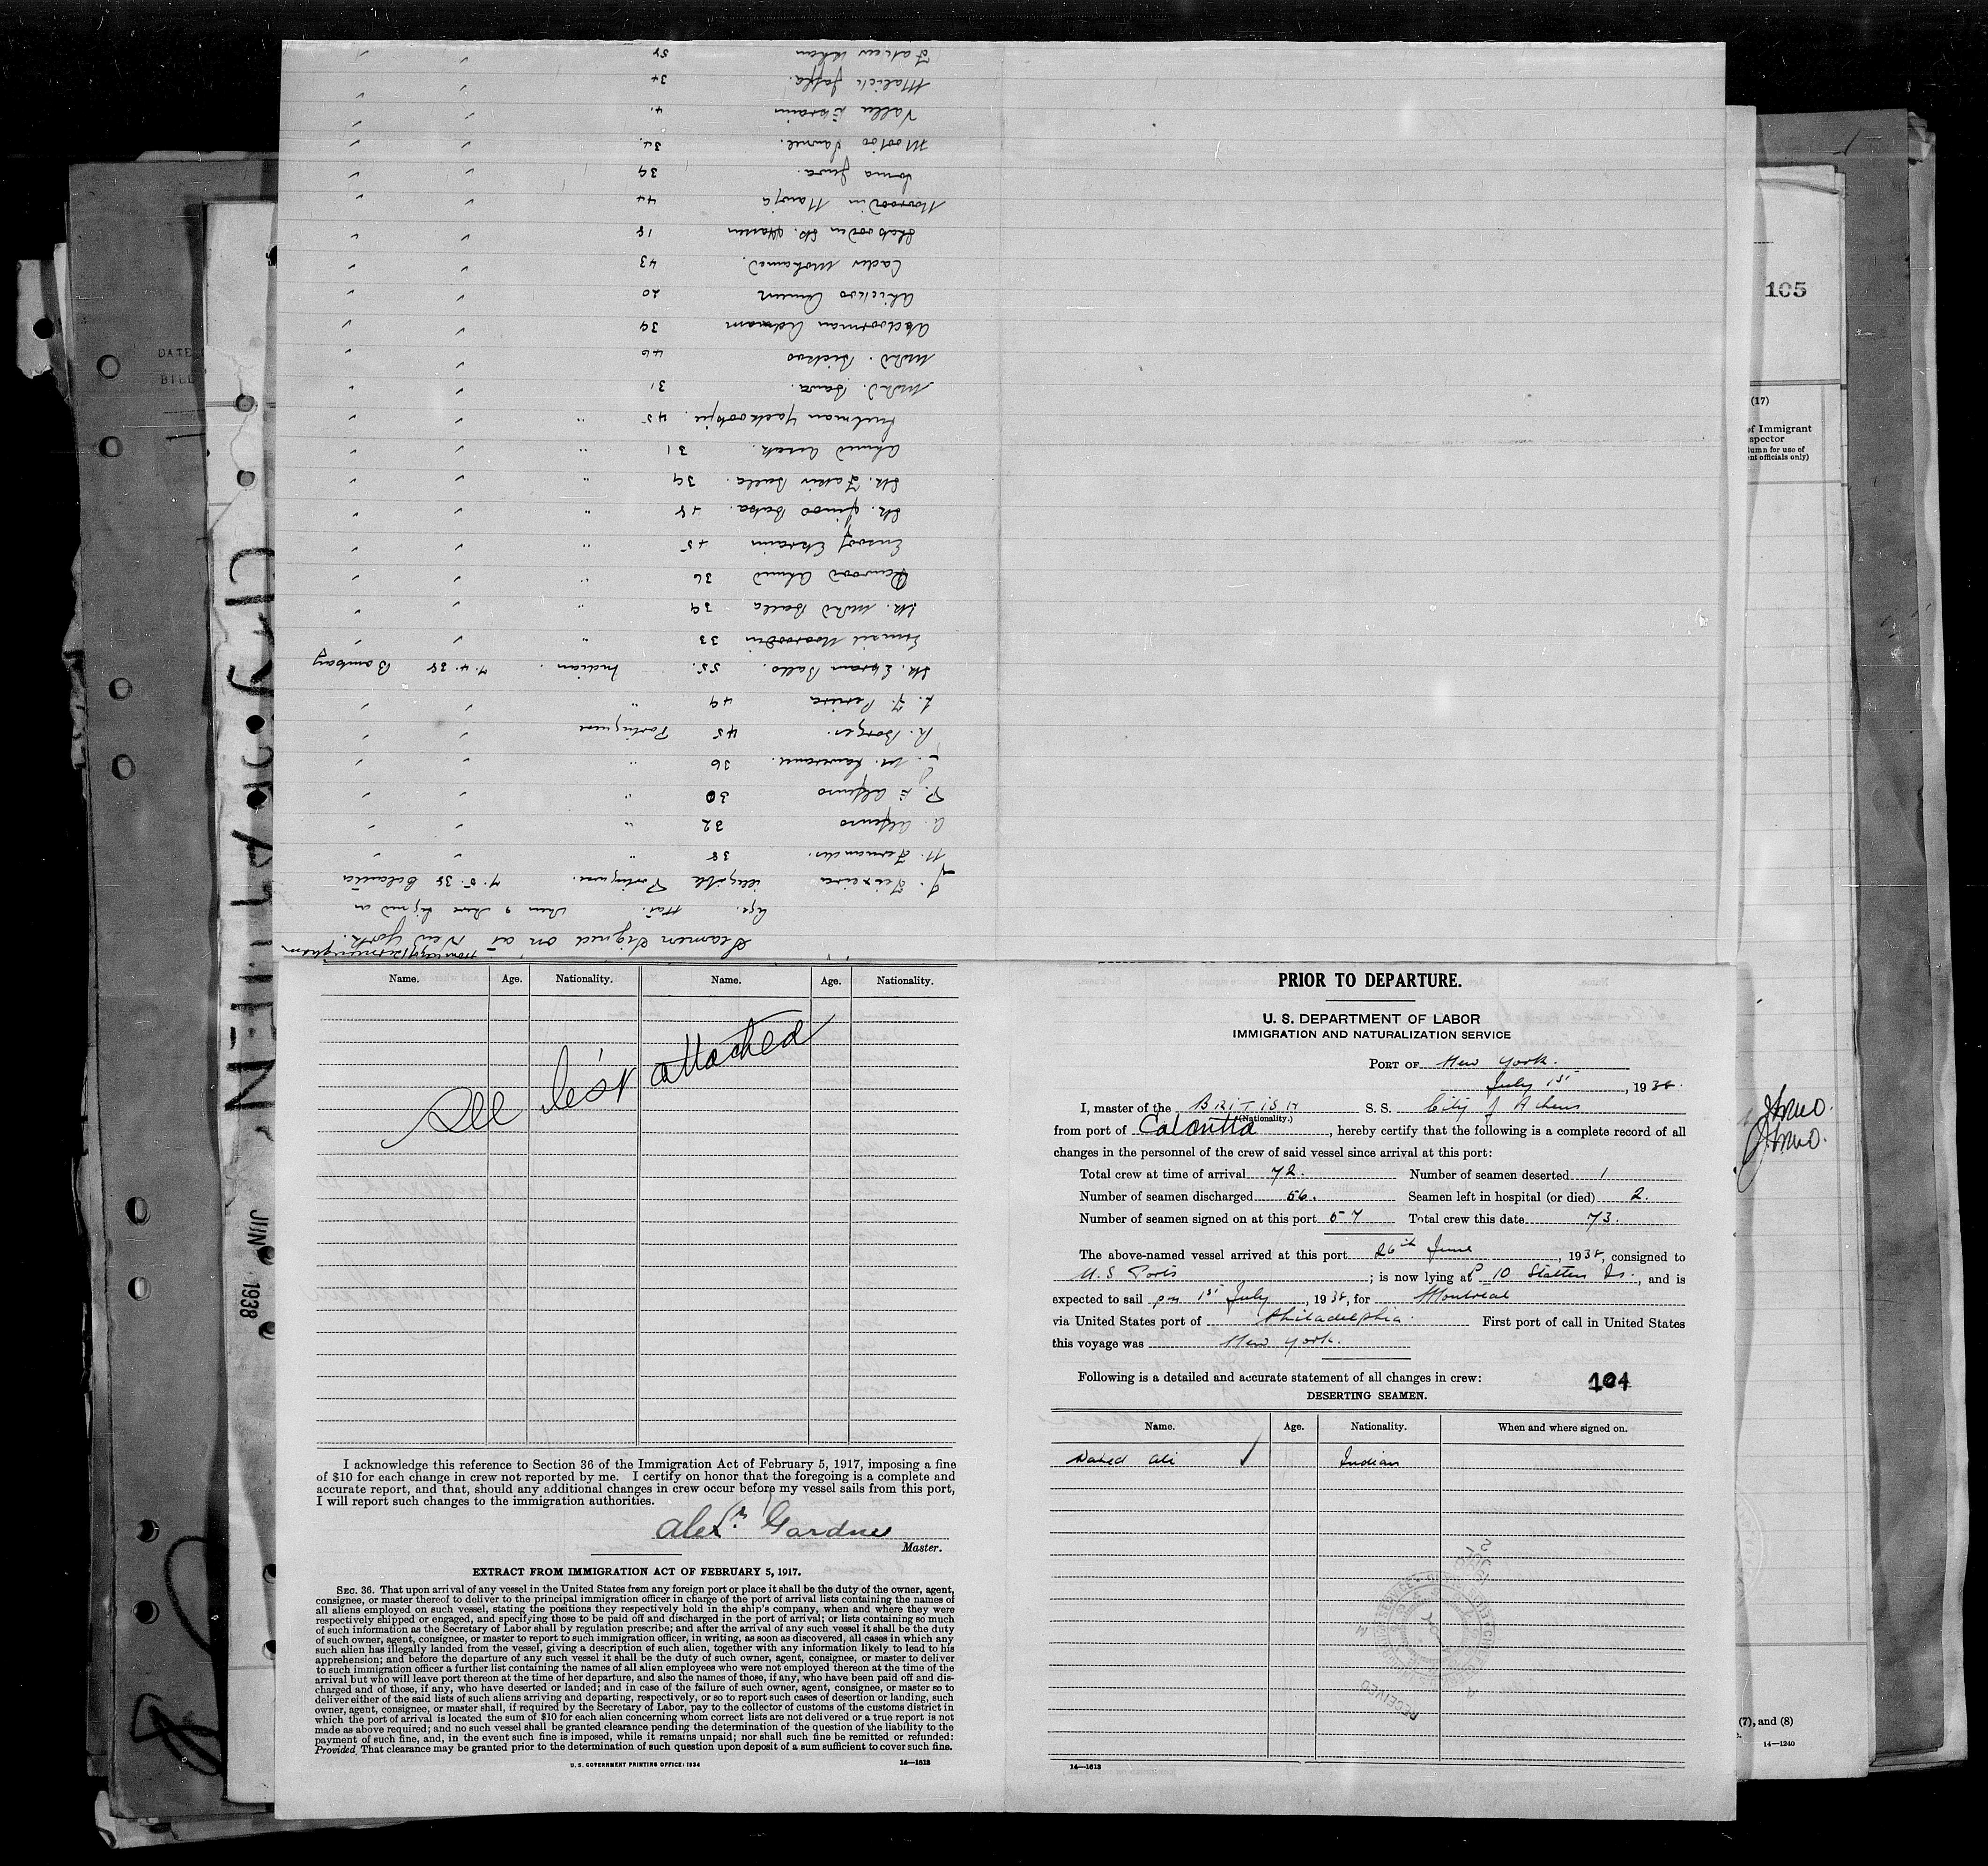 Seamen signed on at New York.
Age. Nat. When & where signed on
J. Teixeira illegible Portuguese. 7.5.38 Calcutta
N. Fernandes. 38 "
A. Alfonso 32 "
P. E Alfonso 30 "
J. M. Lawrance. 36 "
R. Borges. 45 Portuguese
L. F. Pereira 49 "
Sk. Ebram Balla. 55. Indian. 7.4.38 Bombay
Esmail Nooroodin 33 "
Sk. Mohd Balla 39 "
Dawood Ahmed 36 "
Eusoof Ebraim 45 "
Sk. Jinoo Baba. 48 "
Sk. Fakir Balla. 39 "
Ahmed 31 "
Suleman 45 "
Mohd. Bawa. 31
Mohd. 46
Abdoorman Adamam 39
Ahickoo 20
Cader Mohamed. 43
Shaboodin Sk. Hassen 18
Nooroodin Mawjia 44
Soma Jiwa. 39
Mootoo 34.
Valla Ebraim 4.
Malick Jaffa. 34
Fakeer Khan 58
Name. Age. Nationality. Name. Age. Nationality.
See list attached
I acknowledge this reference to Section 36 of the Immigration Act of February 5, 1917, imposing a fine
of $10 for each change in crew not reported by me. I certify on honor that the foregoing is a complete and
accurate report, and that, should any additional changes in crew occur before my vessel sails from this port,
I will report such changes to the immigration authorities.
Alexr. Gardner
Master.
EXTRACT FROM IMMIGRATION ACT OF FEBRUARY 5, 1917.
SEC. 36. That upon arrival of any vessel in the United States from any foreign port or place it shall be the duty of the owner, agent,
consignee, or master thereof to deliver to the principal immigration officer in charge of the port of arrival lists containing the names of
all aliens employed on such vessel, stating the positions they respectively hold in the ship's company, when and where they were
respectively shipped or engaged, and specifying those to be paid off and discharged in the port of arrival; or lists containing so much
of such information as the Secretary of Labor shall by regulation prescribe; and after the arrival of any such vessel it shall be the duty
of such owner, agent, consignee, or master to report to such immigration officer, in writing, as soon as discovered, all cases in which any
such alien has illegally landed from the vessel, giving a description of such alien, together with any information likely to lead to his
apprehension; and before the departure of any such vessel it shall be the duty of such owner, agent, consignee, or master to deliver
to such immigration officer a further list containing the names of all alien employees who were not employed thereon at the time of the
arrival but who will leave port thereon at the time of her departure, and also the names of those, if any, who have been paid off and dis-
charged and of those, if any, who have deserted or landed; and in case of the failure of such owner, agent, consignee, or master so to
deliver either of the said lists of such aliens arriving and departing, respectively, or so to report such cases of desertion or landing, such
owner, agent, consignee, or master shall, if required by the Secretary of Labor, pay to the collector of customs of the customs district in
which the port of arrival is located the sum of $10 for each alien concerning whom correct lists are not delivered or a true report is not
made as above required; and no such vessel shall be granted clearance pending the determination of the question of the liability to the
payment of such fine, and, in the event such fine is imposed, while it remains unpaid; nor shall such fine be remitted or refunded:
Provided, That clearance may be granted prior to the determination of such question upon deposit of a sum sufficient to cover such fine.
U. S. GOVERNMENT PRINTING OFFICE: 1934 14—1613
PRIOR TO DEPARTURE.
U. S. DEPARTMENT OF LABOR
IMMIGRATION AND NATURALIZATION SERVICE
PORT OF New York.
July 1st, 1938.
I, master of the BRITISH S. S. City of Athens
(Nationality.)
from port of Calcutta, hereby certify that the following is a complete record of all
changes in the personnel of the crew of said vessel since arrival at this port:
Total crew at time of arrival 72. Number of seamen deserted 1
Number of seamen discharged 56. Seamen left in hospital (or died) 2.
Number of seamen signed on at this port 57 Total crew this date 73.
The above-named vessel arrived at this port 26th June, 1938, consigned to
U.S Ports; is now lying at P 10 Statten Is., and is
expected to sail pm 1st July, 1938, for Montreal
via United States port of Philadelphia. First port of call in United States
this voyage was New York.
Following is a detailed and accurate statement of all changes in crew:
104
DESERTING SEAMEN.
Name. Age. Nationality. When and where signed on.
Wahed Ali Indian
RECEIVED
14—1613
105
(17)
of Immigrant
spector
lumn for use of
nt officials only)
(7), and (8)
14—1240
DATE
BILL
CITY OF ATHEN
JUN 1938